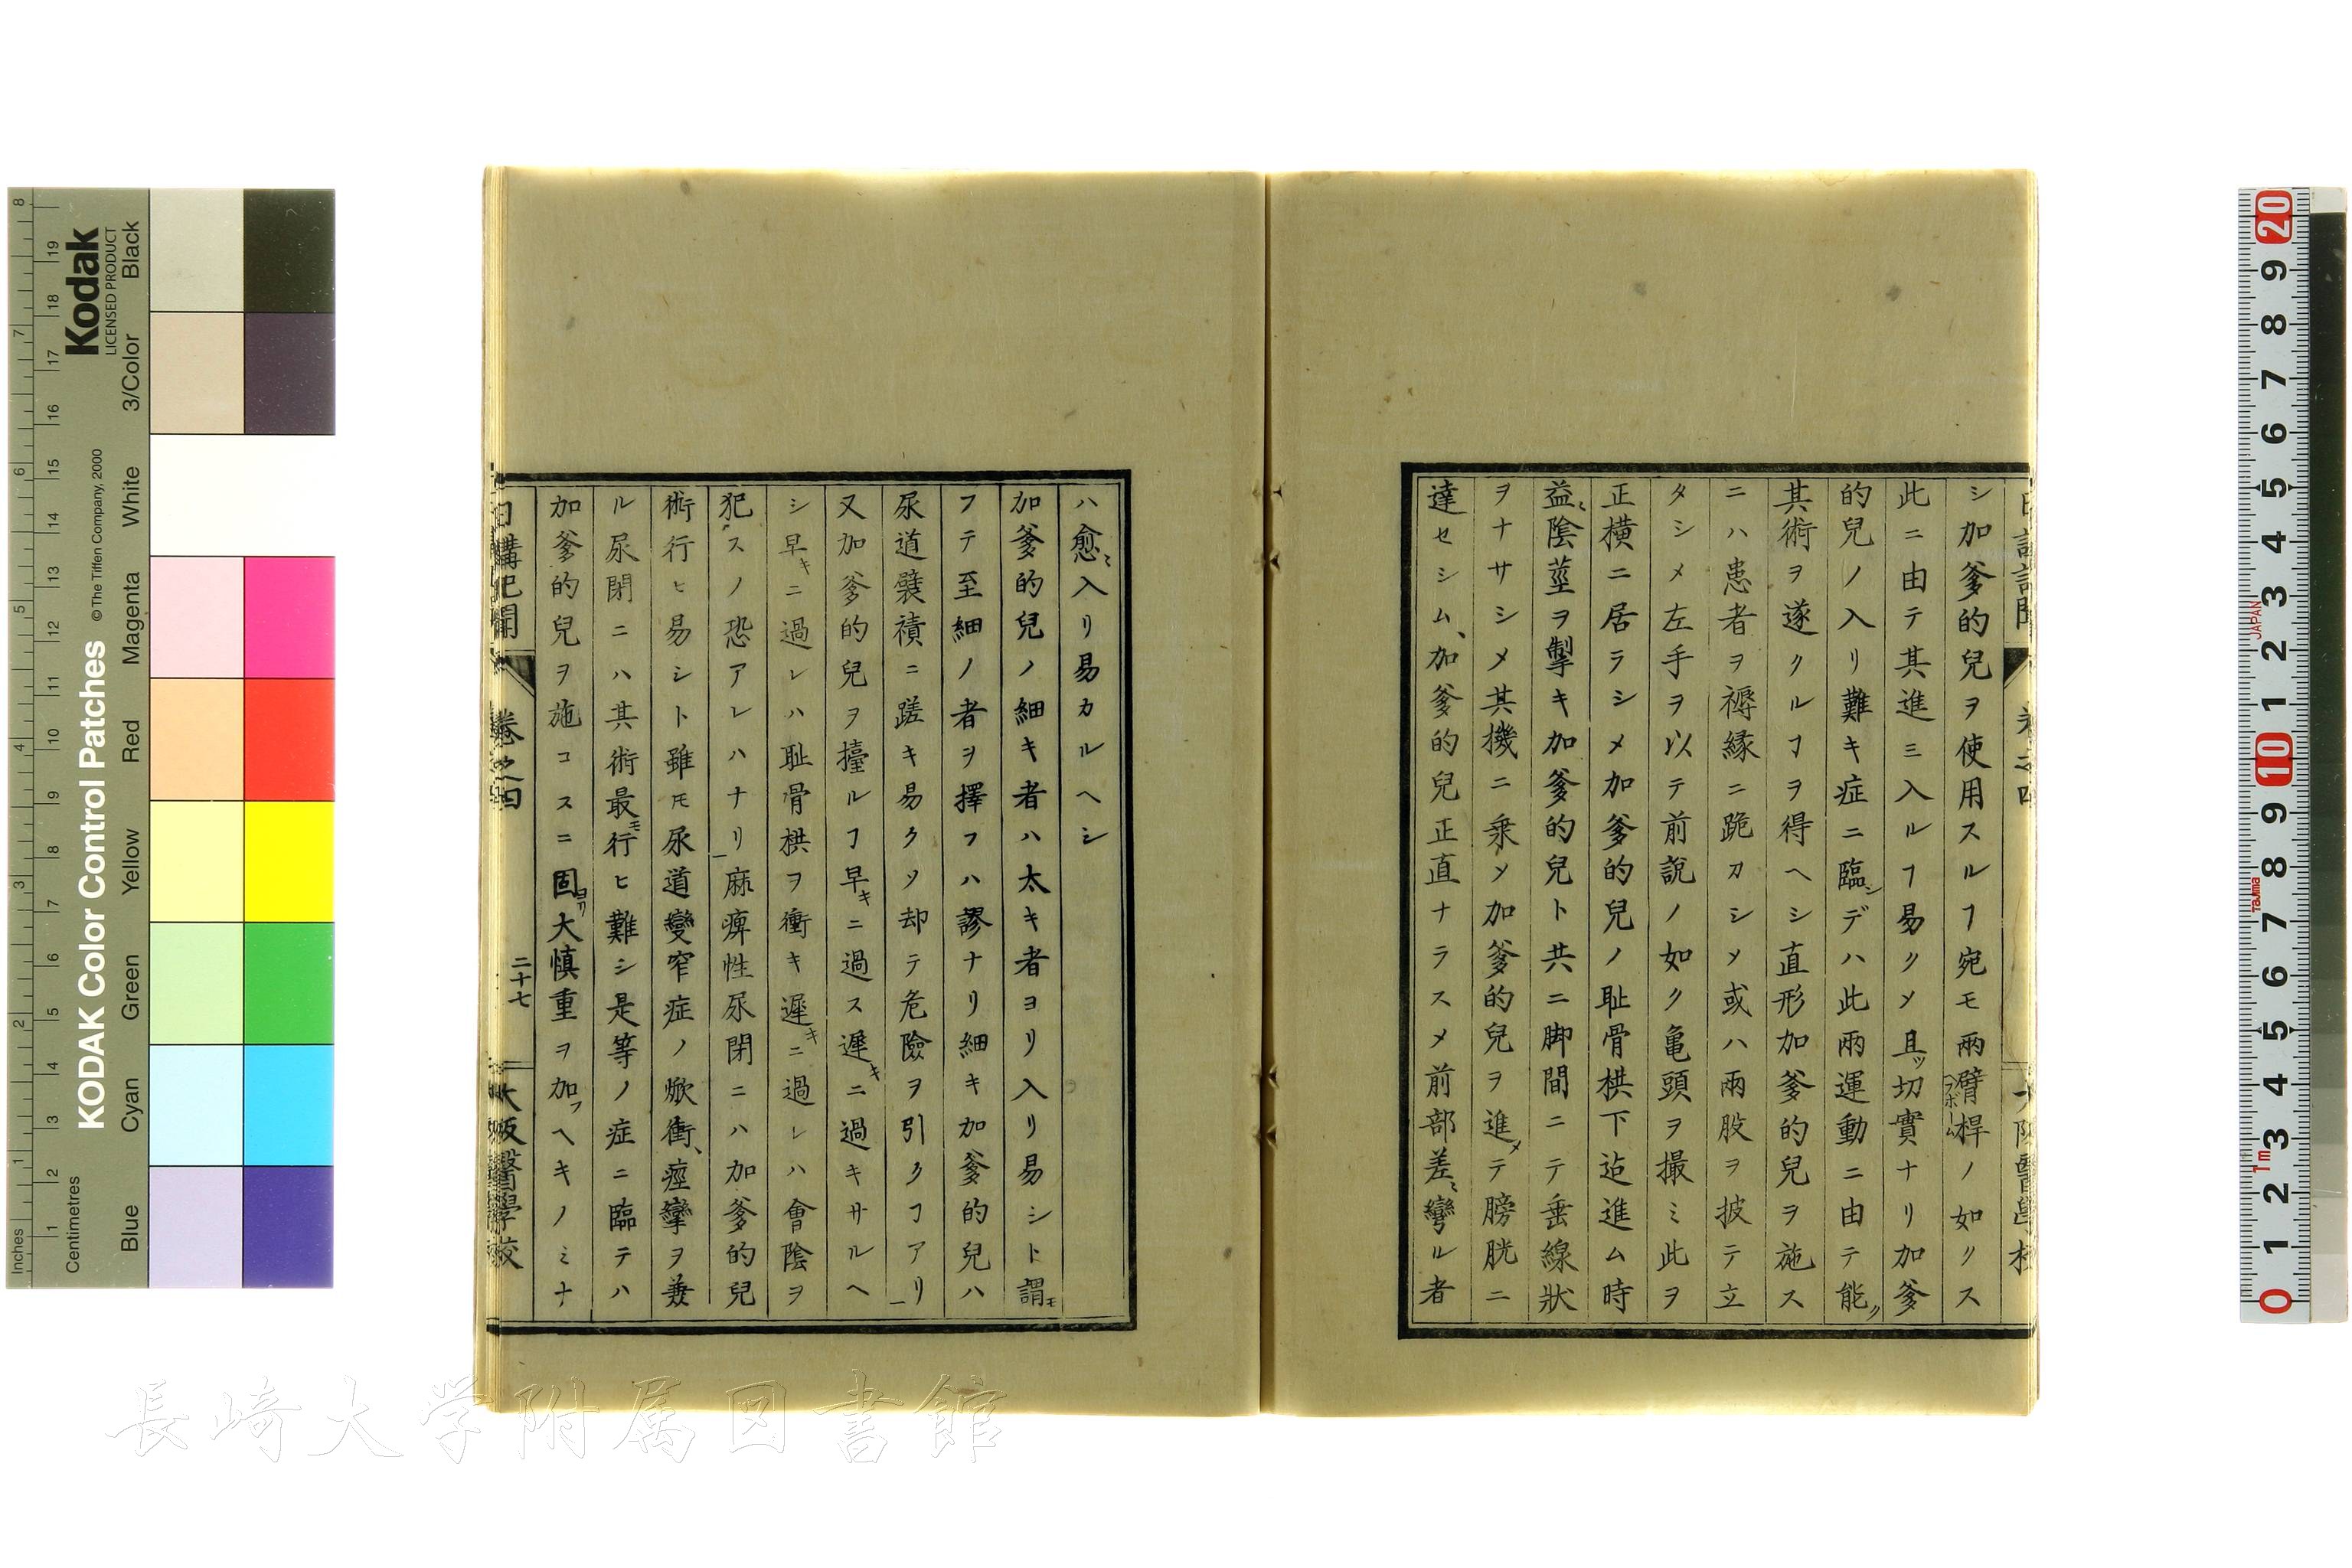 シ加爹的兒ヲ使用スルヿ宛モ兩臂桿ノ如クス
此ニ由テ其進ミ入ルヿ易クメ且ツ切實ナリ加爹
的兒ノ入リ難キ症ニ臨シデハ此兩運動ニ由テ能ク
其術ヲ遂クルヿヲ得ヘシ直形加爹的兒ヲ施ス
ニハ患者ヲ褥緣ニ跪カシメ或ハ兩股ヲ披テ立
タシメ左手ヲ以テ前說ノ如ク亀頭ヲ撮ミ此ヲ
正橫ニ居ラシメ加爹的兒ノ耻骨栱下迠進ム時
益〻陰莖ヲ掣キ加爹的兒ト共ニ脚間ニテ垂線狀
ヲナサシメ其機ニ乘メ加爹的兒ヲ進メテ膀胱ニ
達セシム、加爹的兒正直ナラスメ前部差〻彎ル者
ハ愈〻入リ易カルヘシ
加爹的兒ノ細キ者ハ太キ者ヨリ入リ易シト謂モ
フテ至細ノ者ヲ擇フハ謬ナリ細キ加爹的兒ハ
尿道襞襀ニ蹉キ易クメ却テ危險ヲ引クヿアリ
又加爹的兒ヲ擡ルヿ早キニ過ス遲キニ過キサルヘ
シ早キニ過レハ耻骨栱ヲ衝キ遲キニ過レハ會陰ヲ
犯スノ恐アレハナリ麻痺性尿閉ニハ加爹的兒
術行ヒ易シト雖モ尿道變窄症ノ焮衝、痙攣ヲ兼
ル尿閉ニハ其術最モ行ヒ難シ是等ノ症ニ臨テハ
加爹的兒ヲ施コスニ固ヨリ大愼重ヲ加フヘキノミナ
日講記聞
卷之四
二十七
大阪醫學校
長崎大学附属図書館
Kodak
LICENSED PRODUCT
KODAK Color Control Patches
© The Tiffen Company, 2000
Inches
Centimetres
Blue
Cyan
Green
Yellow
Red
Magenta
White
3/Color
Black